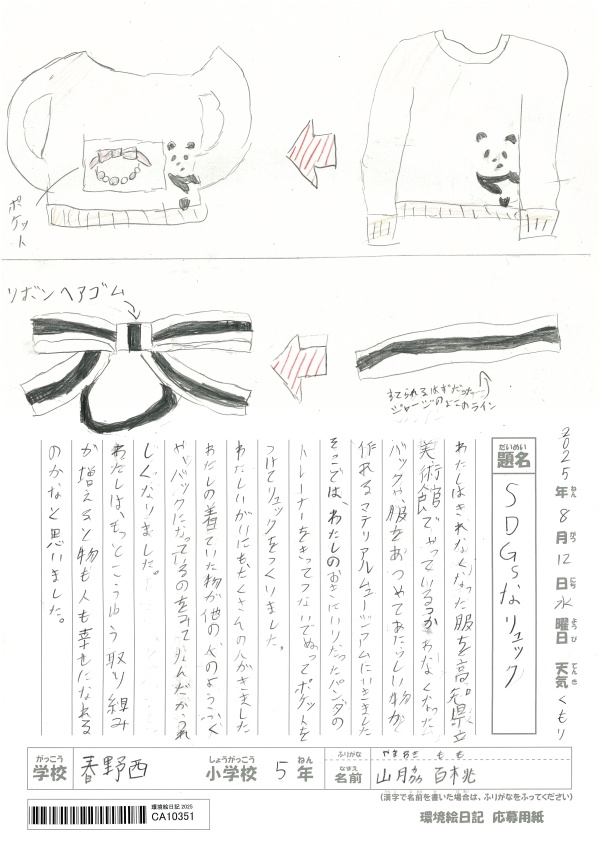 ポケット
リボンヘアゴム
すてられるはずだった
ジャージのよこのライン
2025年ねん8月がつ12日にち水曜日ようび 天気てんきくもり
だいめい
題名
SDGsなリュック
わたしはきれなくなった服を高知県立
美術館でやっているつかわなくなった
バックや、服をあつめてあたらしい物が
作れるマテリアルミュージアムにいきました
そこでは、わたしのおきにいりだったパンダの
トレーナーをきってつないでぬってポケットを
つけてリュックをつくりました。
わたしいがいにもたくさんの人がきました
わたしの着ていた物が他の人のようふく
や、バックになっているのをみてなんだかうれ
しくなりました。
わたしは、もっとこうゆう取り組み
が増えると物も人も幸せになれる
のかなと思いました。
がっこう しょうがっこう ねん
学校 春野西 小学校 5年
ふりがな やまわき もも
なまえ
名前 山脇 百桃
(漢字で名前を書いた場合は、ふりがなをふってください)
環境絵日記 2025
CA10351
環境絵日記 応募用紙